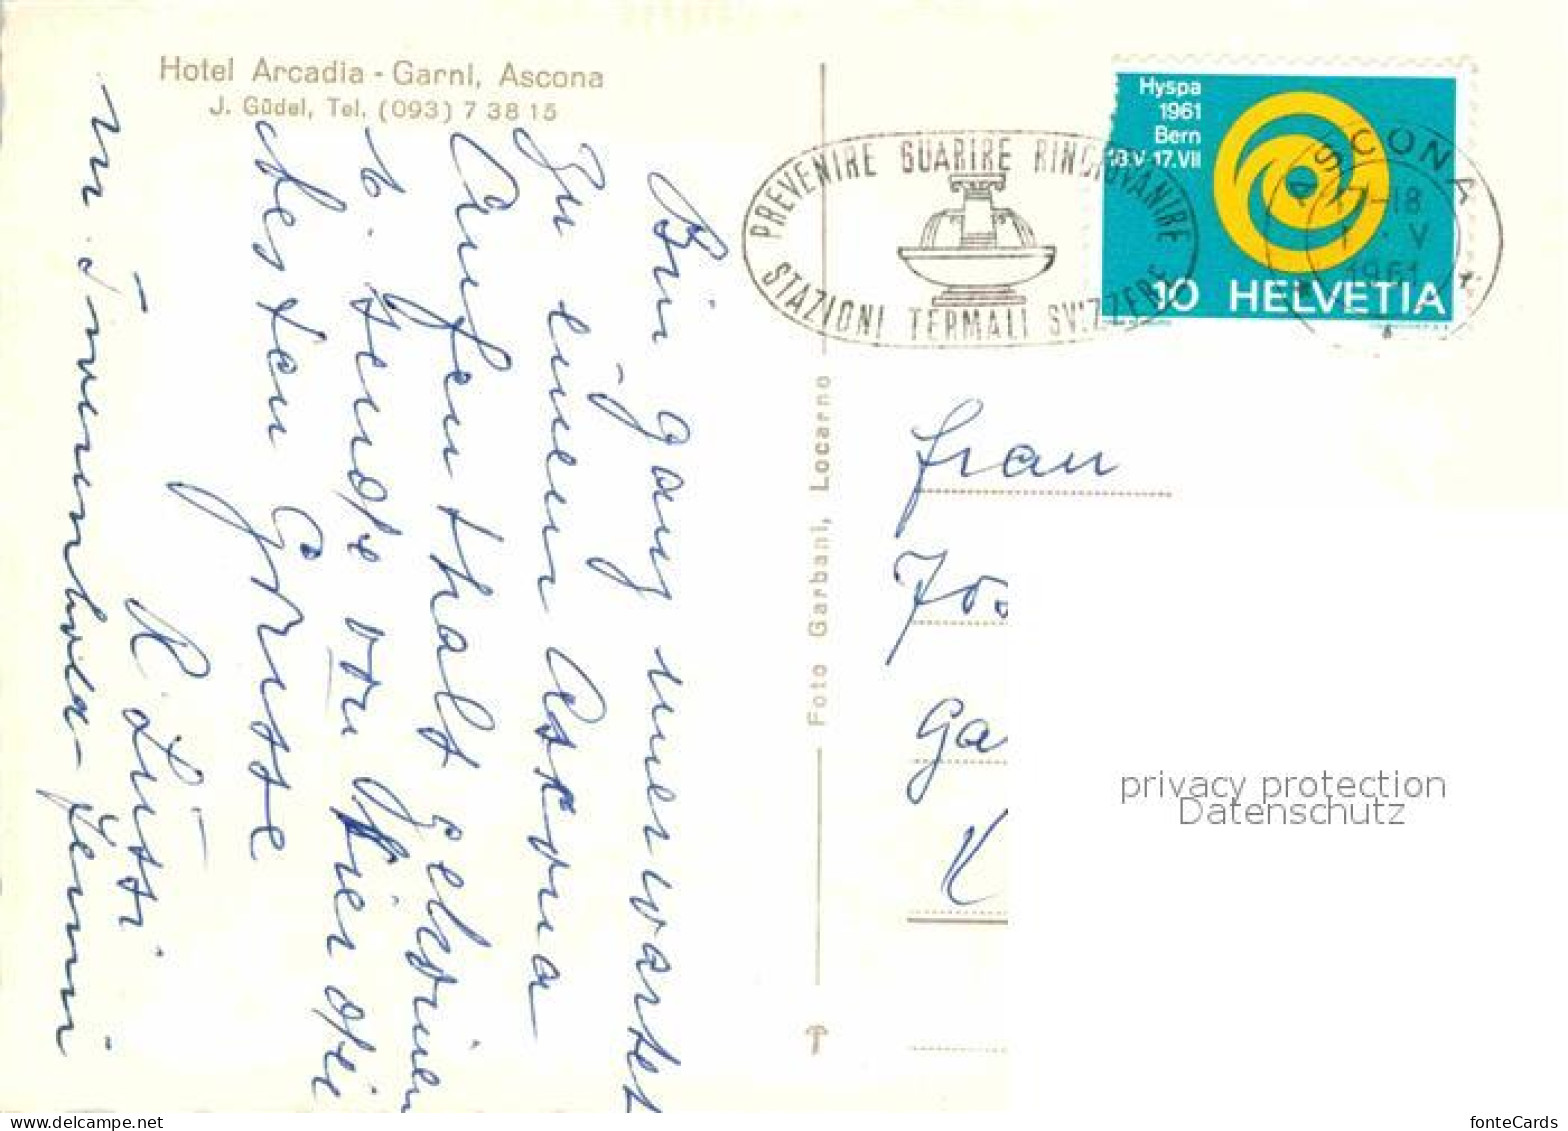 Hotel Arcadia - Garni, Ascona
J. Güdel, Tel. (093) 7 38 15
Bin ganz unerwartet
zu einem Ascona
Aufenthalt gekommen
& sende von hier die
besten Grüsse
R. Lüthi
Foto Garbani, Locarno
PREVENIRE GUARIRE RINGIOVANIRE
STAZIONI TERMALI SVIZZERE
Hyspa
1961
Bern
18.V-17.VII
10 HELVETIA
ASCONA
17-18
V
1961
Frau
Ga
K
privacy protection
Datenschutz
www.delcampe.net
fonteCards